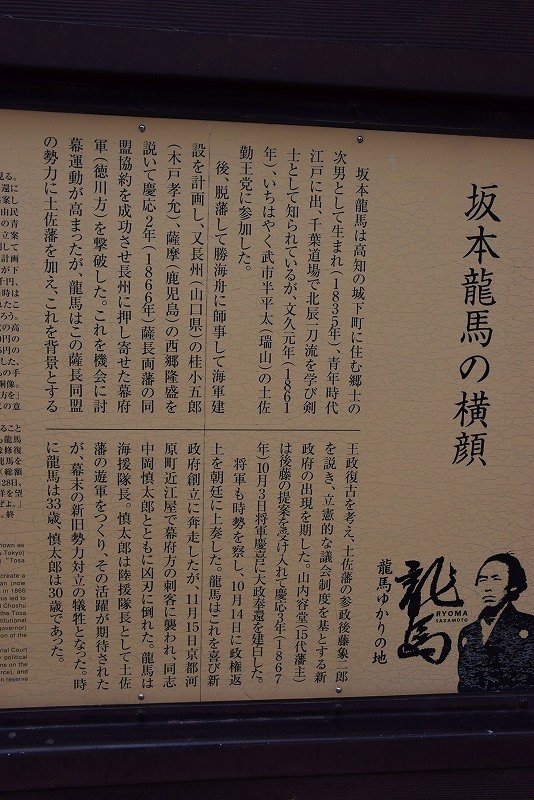 坂本龍馬の横顔
坂本龍馬は高知の城下町に住む郷士の
次男として生まれ(1835年)、青年時代
江戸に出、千葉道場で北辰一刀流を学び剣
士として知られているが、文久元年(1861
年)、いちはやく武市半平太(瑞山)の土佐
勤王党に参加した。
後、脱藩して勝海舟に師事して海軍建
設を計画し、又長州(山口県)の桂小五郎
(木戸孝允)、薩摩(鹿児島)の西郷隆盛を
説いて慶応2年(1866年)薩長両藩の同
盟協約を成功させ長州に押し寄せた幕府
軍(徳川方)を撃破した。これを機会に討
幕運動が高まったが、龍馬はこの薩長同盟
の勢力に土佐藩を加え、これを背景とする
王政復古を考え、土佐藩の参政後藤象二郎
を説き、立憲的な議会制度を基とする新
政府の出現を期した。山内容堂(15代藩主)
は後藤の提案を受け入れて慶応3年(1867
年)10月3日将軍慶喜に大政奉還を建白した。
将軍も時勢を察し、10月14日に政権返
上を朝廷に上奏した。龍馬はこれを喜び新
政府創立に奔走したが、11月15日京都河
原町近江屋で幕府方の刺客に襲われ、同志
中岡慎太郎とともに凶刃に倒れた。龍馬は
海援隊長。慎太郎は陸援隊長として土佐
藩の遊軍をつくり、その活躍が期待された
が、幕末の新旧勢力対立の犠牲となった。時
に龍馬は33歳、慎太郎は30歳であった。
龍馬
RYOMA
SAKAMOTO
龍馬ゆかりの地